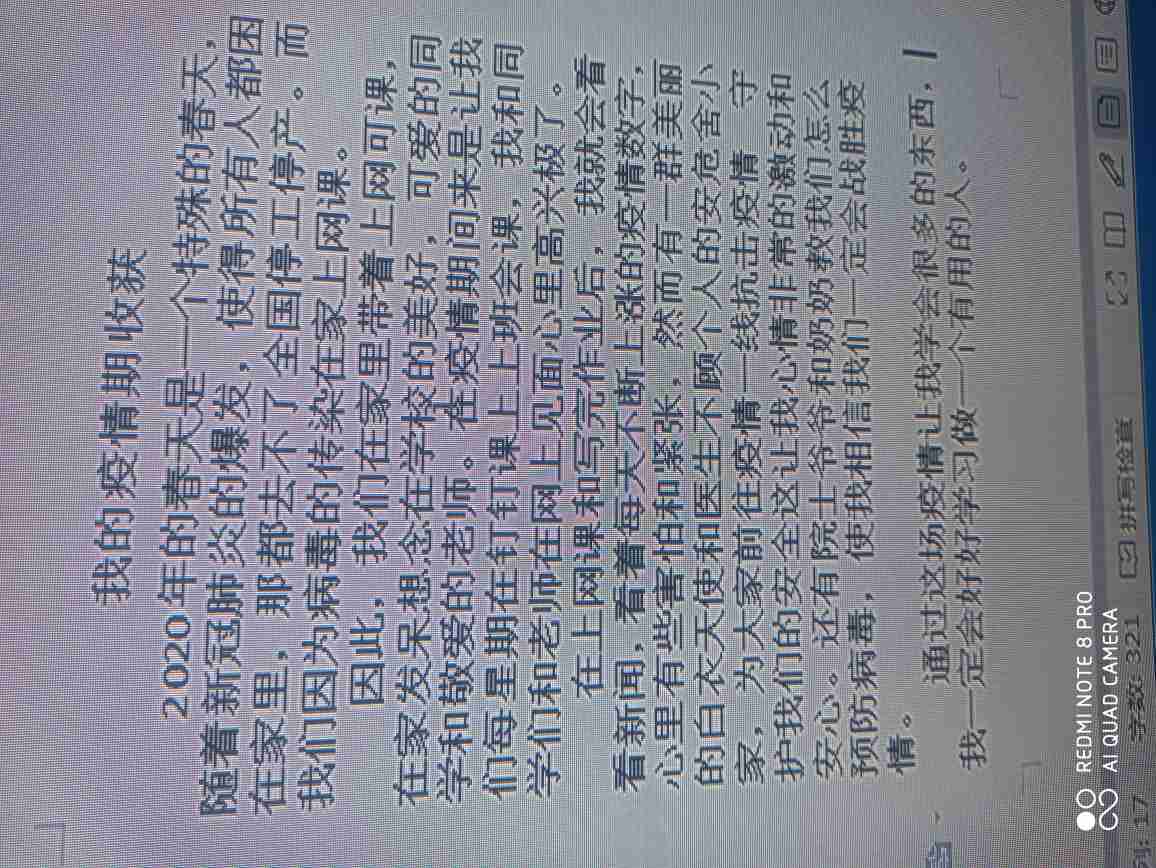 我的疫情期收获
2020年的春天是一个特殊的春天，
随着新冠肺炎的爆发，使得所有人都困
在家里，那都去不了全国停工停产。而
我们因为病毒的传染在家上网课。
因此，我们在家里带着上网可课，
在家发呆想念在学校的美好，可爱的同
学和敬爱的老师。在疫情期间来是让我
们每星期在钉钉课上上班会课，我和同
学们和老师在网上见面心里高兴极了。
在上网课和写完作业后，我就会看
看新闻，看着每天不断上涨的疫情数字，
心里有些害怕和紧张，然而有一群美丽
的白衣天使和医生不顾个人的安危舍小
家，为大家前往疫情一线抗击疫情 守
护我们的安全这让我心情非常的激动和
安心。还有院士爷爷和奶奶教我们怎么
预防病毒，使我相信我们一定会战胜疫
情。
通过这场疫情让我学会很多的东西，
我一定会好好学习做一个有用的人。
列: 17 字数: 321 拼写检查
REDMI NOTE 8 PRO
AI QUAD CAMERA